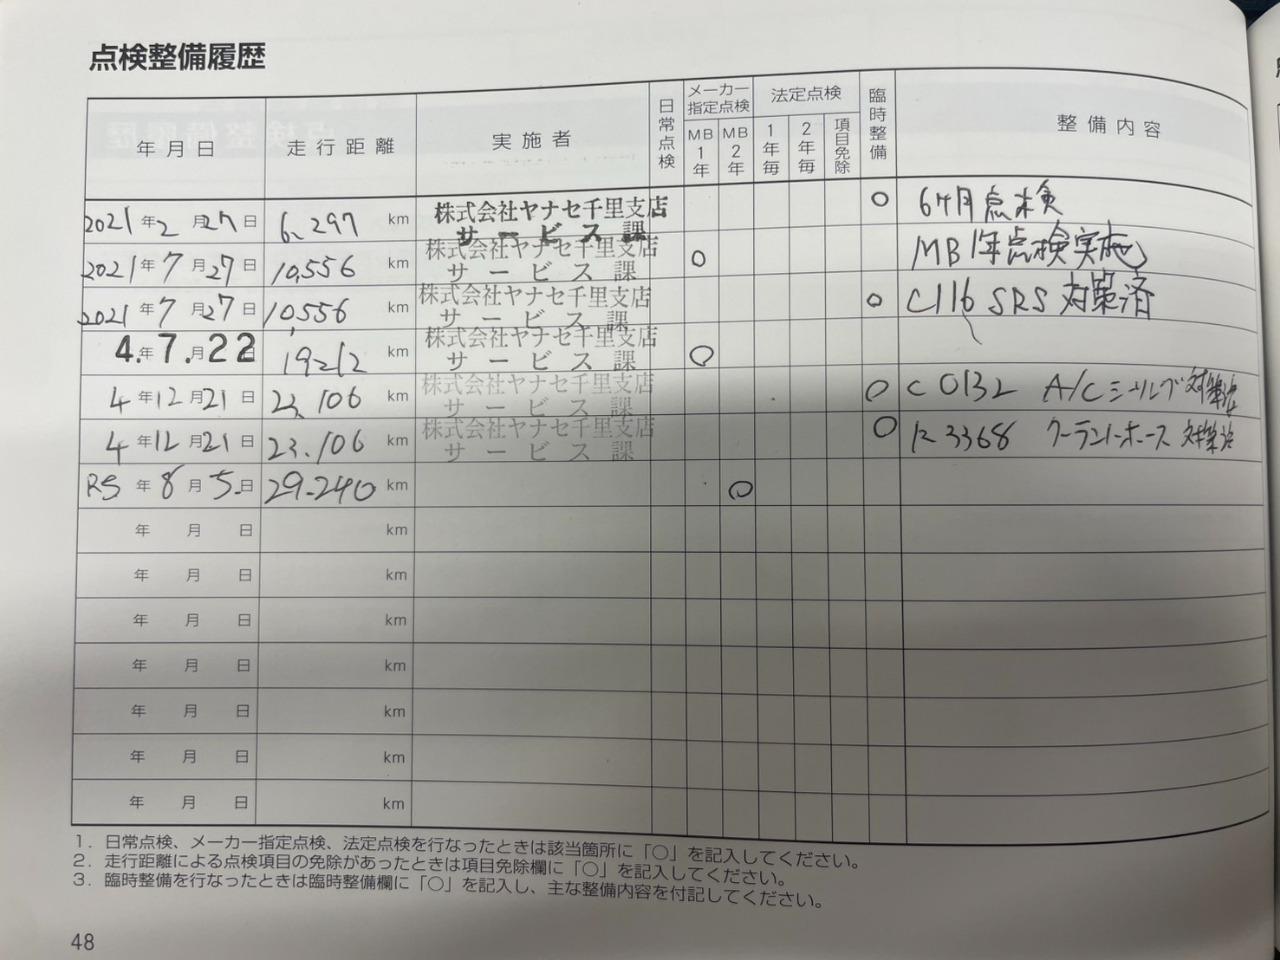 点検整備履歴
年月日 走行距離 実施者 日常点検 メーカー指定点検 MB1年 MB2年 法定点検 1年毎 2年毎 項目免除 臨時整備 整備内容
2021年2月27日 6,297 km 株式会社ヤナセ千里支店 サービス課 ○ 6ヶ月点検
2021年7月27日 10,556 km 株式会社ヤナセ千里支店 サービス課 ○ MB1年点検実施
2021年7月27日 10,556 km 株式会社ヤナセ千里支店 サービス課 ○ C116 SRS 対策済
4.年7.月22日 19212 km 株式会社ヤナセ千里支店 サービス課 ○
4年12月21日 23,106 km 株式会社ヤナセ千里支店 サービス課 ○ C0132 A/C 対策済
4年12月21日 23.106 km 株式会社ヤナセ千里支店 サービス課 ○ R3368 クーラントホース 対策済
R5年8月5日 29-240 km ○
年 月 日 km
年 月 日 km
年 月 日 km
年 月 日 km
年 月 日 km
年 月 日 km
年 月 日 km
1．日常点検、メーカー指定点検、法定点検を行なったときは該当箇所に「○」を記入してください。
2．走行距離による点検項目の免除があったときは項目免除欄に「○」を記入してください。
3．臨時整備を行なったときは臨時整備欄に「○」を記入し、主な整備内容を付記してください。
48